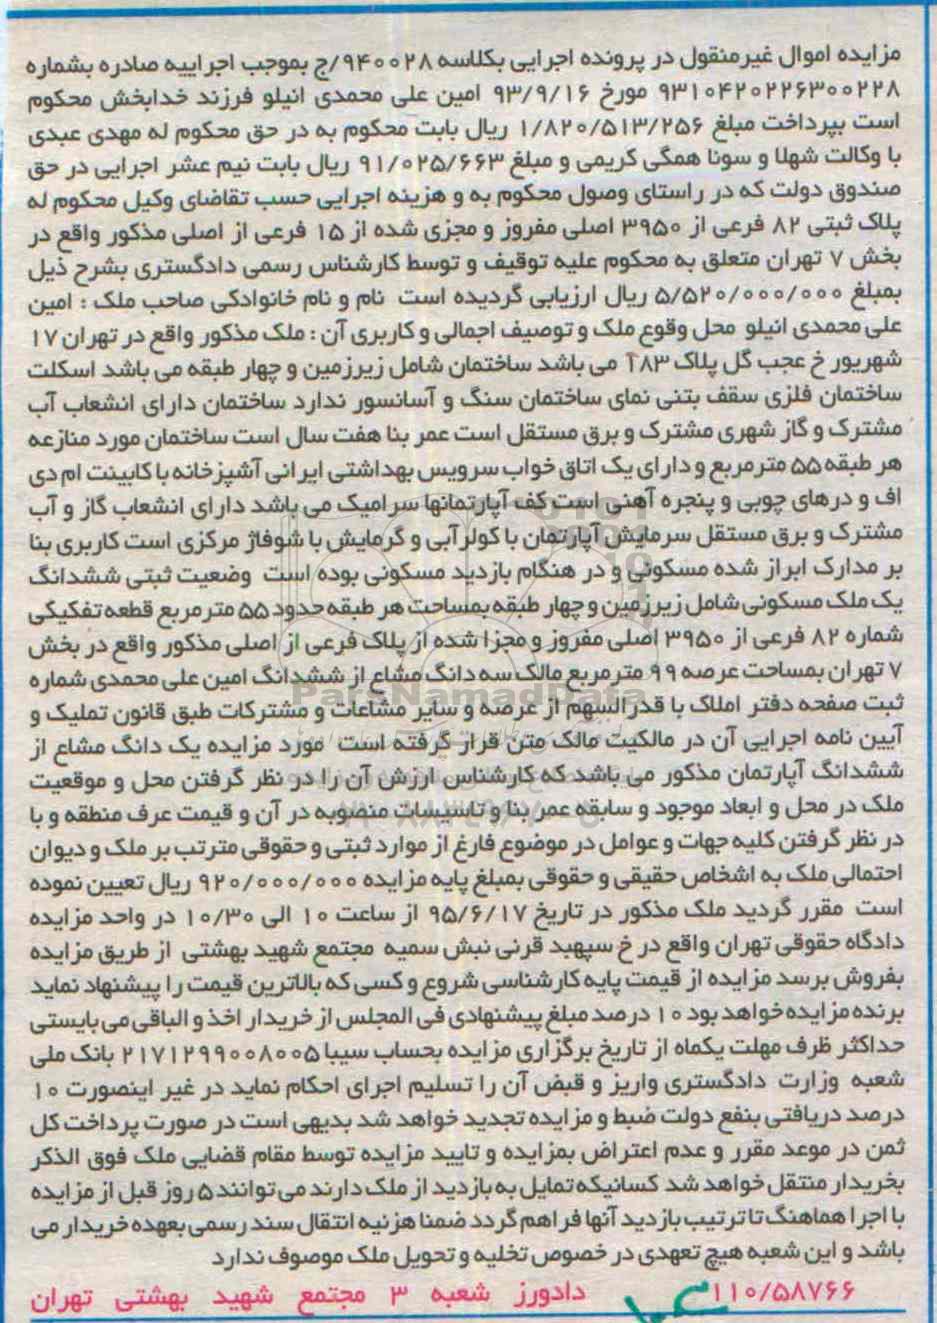 مزایده اموال غیرمنقول در پرونده اجرایی بکلاسه ۹۴۰۰۲۸/ج بموجب اجراییه صادره بشماره
۹۳۱۰۴۲۰۲۲۶۳۰۰۲۲۸ مورخ ۹۳/۹/۱۶ امین علی محمدی انیلو فرزند خدابخش محکوم
است بپرداخت مبلغ ۱/۸۲۰/۵۱۳/۲۵۶ ریال بابت محکوم به در حق محکوم له مهدی عبدی
با وکالت شهلا و سونا همگی کریمی و مبلغ ۹۱/۰۲۵/۶۶۳ ریال بابت نیم عشر اجرایی در حق
صندوق دولت که در راستای وصول محکوم به و هزینه اجرایی حسب تقاضای وکیل محکوم له
پلاک ثبتی ۸۲ فرعی از ۳۹۵۰ اصلی مفروز و مجزی شده از ۱۵ فرعی از اصلی مذکور واقع در
بخش ۷ تهران متعلق به محکوم علیه توقیف و توسط کارشناس رسمی دادگستری بشرح ذیل
بمبلغ ۵/۵۲۰/۰۰۰/۰۰۰ ریال ارزیابی گردیده است نام و نام خانوادگی صاحب ملک : امین
علی محمدی انیلو محل وقوع ملک و توصیف اجمالی و کاربری آن : ملک مذکور واقع در تهران ۱۷
شهریور خ عجب گل پلاک ۱۸۳ می باشد ساختمان شامل زیرزمین و چهار طبقه می باشد اسکلت
ساختمان فلزی سقف بتنی نمای ساختمان سنگ و آسانسور ندارد ساختمان دارای انشعاب آب
مشترک و گاز شهری مشترک و برق مستقل است عمر بنا هفت سال است ساختمان مورد منازعه
هر طبقه ۵۵ مترمربع و دارای یک اتاق خواب سرویس بهداشتی ایرانی آشپزخانه با کابینت ام دی
اف و درهای چوبی و پنجره آهنی است کف آپارتمانها سرامیک می باشد دارای انشعاب گاز و آب
مشترک و برق مستقل سرمایش آپارتمان با کولر آبی و گرمایش با شوفاژ مرکزی است کاربری بنا
بر مدارک ابراز شده مسکونی و در هنگام بازدید مسکونی بوده است وضعیت ثبتی ششدانگ
یک ملک مسکونی شامل زیرزمین و چهار طبقه بمساحت هر طبقه حدود ۵۵ مترمربع قطعه تفکیکی
شماره ۸۲ فرعی از ۳۹۵۰ اصلی مفروز و مجزا شده از پلاک فرعی از اصلی مذکور واقع در بخش
۷ تهران بمساحت عرصه ۹۹ مترمربع مالک سه دانگ مشاع از ششدانگ امین علی محمدی شماره
ثبت صفحه دفتر املاک با قدرالسهم از عرصه و سایر مشاعات و مشترکات طبق قانون تملیک و
آیین نامه اجرایی آن در مالکیت مالک متن قرار گرفته است مورد مزایده یک دانگ مشاع از
ششدانگ آپارتمان مذکور می باشد که کارشناس ارزش آن را در نظر گرفتن محل و موقعیت
ملک در محل و ابعاد موجود و سابقه عمر بنا و تاسیسات منصوبه در آن و قیمت عرف منطقه و با
در نظر گرفتن کلیه جهات و عوامل در موضوع فارغ از موارد ثبتی و حقوقی مترتب بر ملک و دیوان
احتمالی ملک به اشخاص حقیقی و حقوقی بمبلغ پایه مزایده ۹۲۰/۰۰۰/۰۰۰ ریال تعیین نموده
است مقرر گردید ملک مذکور در تاریخ ۹۵/۶/۱۷ از ساعت ۱۰ الی ۱۰/۳۰ در واحد مزایده
دادگاه حقوقی تهران واقع در خ سپهبد قرنی نبش سمیه مجتمع شهید بهشتی از طریق مزایده
بفروش برسد مزایده از قیمت پایه کارشناسی شروع و کسی که بالاترین قیمت را پیشنهاد نماید
برنده مزایده خواهد بود ۱۰ درصد مبلغ پیشنهادی فی المجلس از خریدار اخذ و الباقی می بایستی
حداکثر ظرف مهلت یکماه از تاریخ برگزاری مزایده بحساب سیبا ۲۱۷۱۲۹۹۰۰۸۰۰۵ بانک ملی
شعبه وزارت دادگستری واریز و قبض آن را تسلیم اجرای احکام نماید در غیر اینصورت ۱۰
درصد دریافتی بنفع دولت ضبط و مزایده تجدید خواهد شد بدیهی است در صورت پرداخت کل
ثمن در موعد مقرر و عدم اعتراض بمزایده و تایید مزایده توسط مقام قضایی ملک فوق الذکر
بخریدار منتقل خواهد شد کسانیکه تمایل به بازدید از ملک دارند می توانند ۵ روز قبل از مزایده
با اجرا هماهنگ تا ترتیب بازدید آنها فراهم گردد ضمنا هزنیه انتقال سند رسمی بعهده خریدار می
باشد و این شعبه هیچ تعهدی در خصوص تخلیه و تحویل ملک موصوف ندارد
۱۱۰/۵۸۷۶۶ دادورز شعبه ۳ مجتمع شهید بهشتی تهران
ParsNamadData